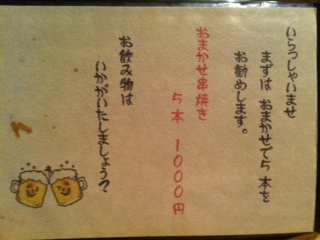 いらっしゃいませ
まずは おまかせで5本を
お勧めします。
おまかせ串焼き
5本 1000円
お飲み物は
いかがいたしましょう?